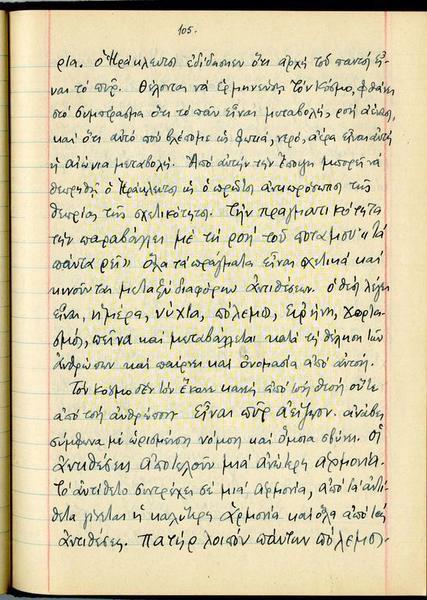 105.
ρία. ὁ Ἡράκλειτος ἐδίδασκεν ὅτι ἀρχή τοῦ παντός εἶ-
ναι τό πῦρ. Θέλοντας νά ἑρμηνεύσῃ τόν κόσμο, φθάνει
στό συμπέρασμα ὅτι τό πᾶν εἶναι μεταβολή, ροή ἀέναος,
καί ὅτι αὐτό πού βλέπομε ὡς φωτιά, νερό, ἀέρα εἶναι αὐτή
ἡ αἰώνια μεταβολή. Ἀπό αὐτήν τήν ἄποψη μπορεῖ νά
θεωρηθῇ ὁ Ἡράκλειτος ὡς ὁ πρῶτος ἀντιπρόσωπος τῆς
θεωρίας τῆς σχετικότητος. Τήν πραγματικότητα
τήν παραβάλλει μέ τή ροή τοῦ ποταμοῦ «τά
πάντα ρεῖ» ὅλα τά πράγματα εἶναι σχετικά καί
κινοῦνται μεταξύ διαφόρων ἀντιθέσεων. ὁ θεός λέγει
εἶναι, ἡμέρα, νύχτα, πόλεμος, εἰρήνη, χορτα-
σμός, πεῖνα καί μεταβάλλεται κατά τή θέληση τῶν
ἀνθρώπων καί παίρνει καί ὀνομασία ἀπό αὐτούς.
Τόν κόσμο δέν τόν ἔκανε κανείς ἀπό τούς θεούς οὔτε
ἀπό τούς ἀνθρώπους εἶναι πῦρ ἀείζωον. ἀνάβει
σύμφωνα μέ ὡρισμένη νόμοση καί ὅμοια σβύνει. Οἱ
ἀντιθέσεις ἀποτελοῦν μιά ἀνώτερη ἁρμονία.
Τό ἀντίθετο συντρέχει σέ μιά ἁρμονία, ἀπό τά ἀντί-
θετα γίνεται ἡ καλύτερη ἁρμονία καί ὅλα ἀπό τίς
ἀντιθέσεις. Πατήρ λοιπόν πάντων πόλεμος.